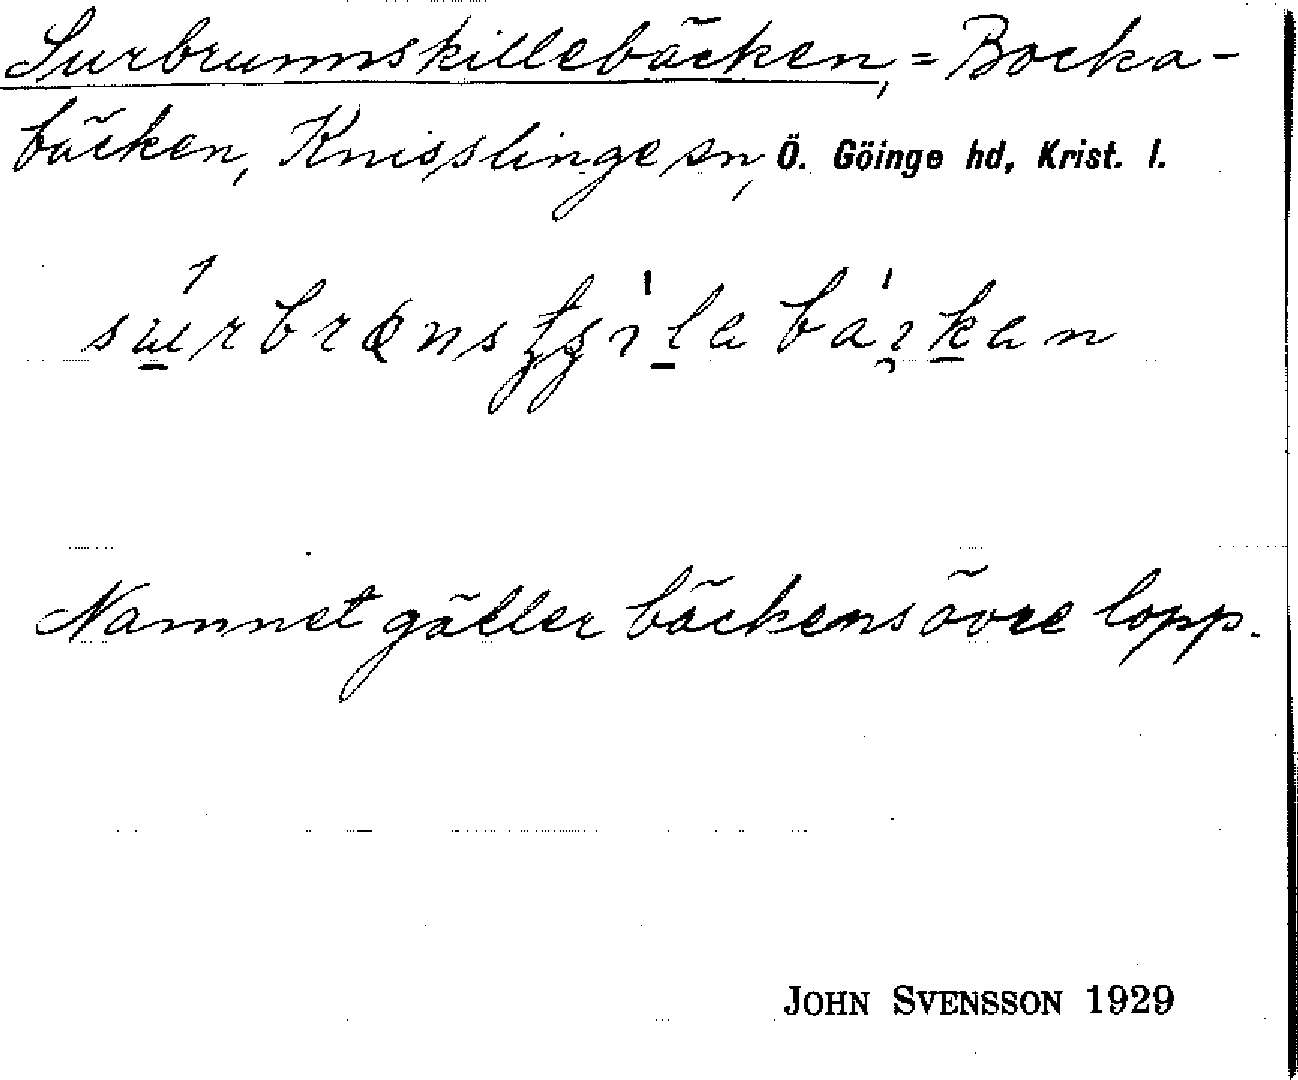 Surbrunnskillebäcken, = Bocka-
bäcken, Knisslinge sn, Ö. Göinge hd, Krist. l.
Namnet gäller bäckens övre lopp.
JOHN SVENSSON 1929